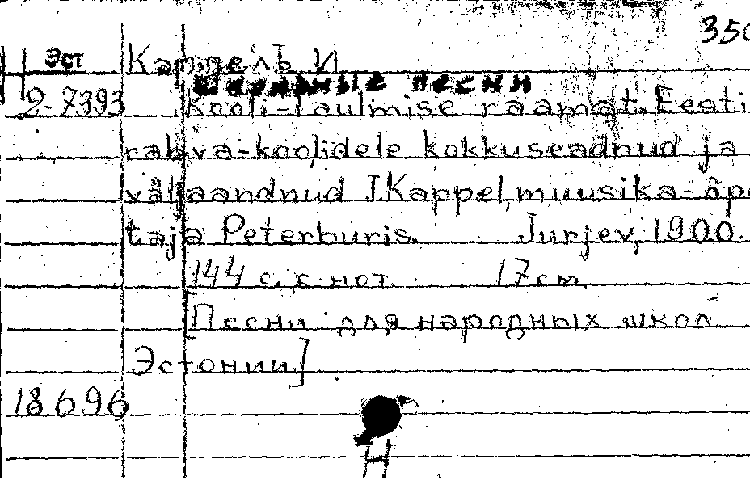 350
Эст Каппель И
Школьные песни
2-7393 Kooli-laulmise raamat. Eesti
rahva-koolidele kokkuseadnud ja
väljaandnud J.Kappel, muusika-õpe
taja Peterburis. Jurjev, 1900.
144 с. с нот. 17 см.
[Песни для народных школ
Эстонии]
18696
Н